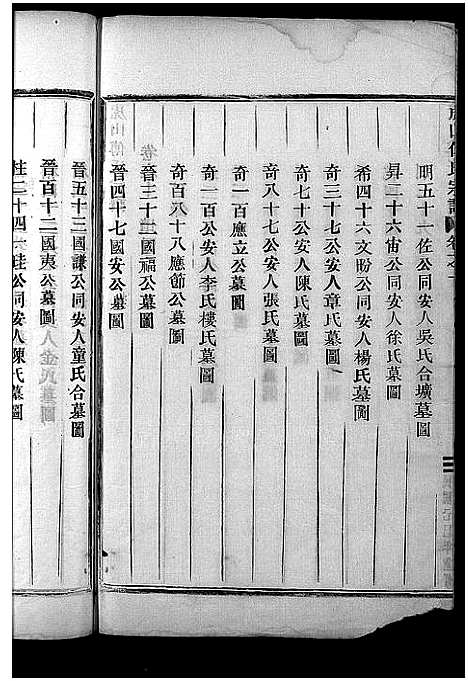 傅氏宗譜 卷之一
明五十一佐公同安人吳氏合壙墓圖
昇二十六宙公同安人徐氏墓圖
希四十六文盼公同安人楊氏墓圖
奇三十七公安人章氏墓圖
奇七十公安人陳氏墓圖
奇八十七公安人張氏墓圖
奇一百應立公墓圖
奇一百公安人李氏樓氏墓圖
奇百八十八應節公墓圖
晉三十三國福公墓圖
晉四十七國安公墓圖
晉五十二國謙公同安人童氏合墓圖
晉百十二國夷公墓圖
桂二十四六珪公同安人陳氏墓圖